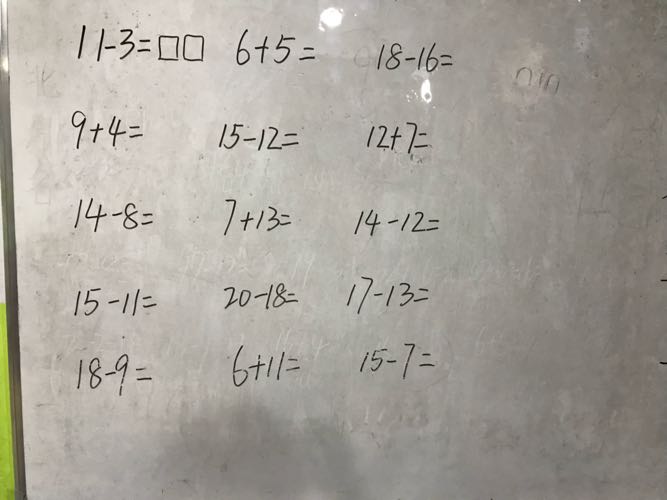 11-3=□□ 6+5= 18-16=
9+4= 15-12= 12+7=
14-8= 7+13= 14-12=
15-11= 20-18= 17-13=
18-9= 6+11= 15-7=